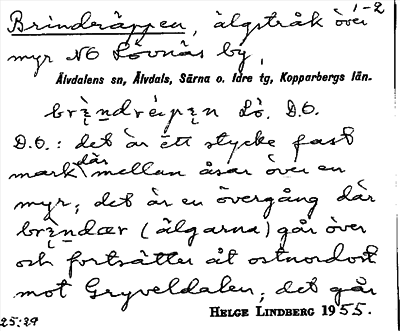 1-2
Brindräppen, älgstråk över
myr NO Lövnäs by,
Älvdalens sn, Älvdals, Särna o. Idre tg, Kopparbergs län.
Lö. D.O.
D.O.: det är ett stycke fast
mark där mellan åsar över en
myr; det är en övergång där
(älgarna) går över
och fortsätter åt ostnordost
mot Gryveldalen; det går
HELGE LINDBERG 1955.
25:29